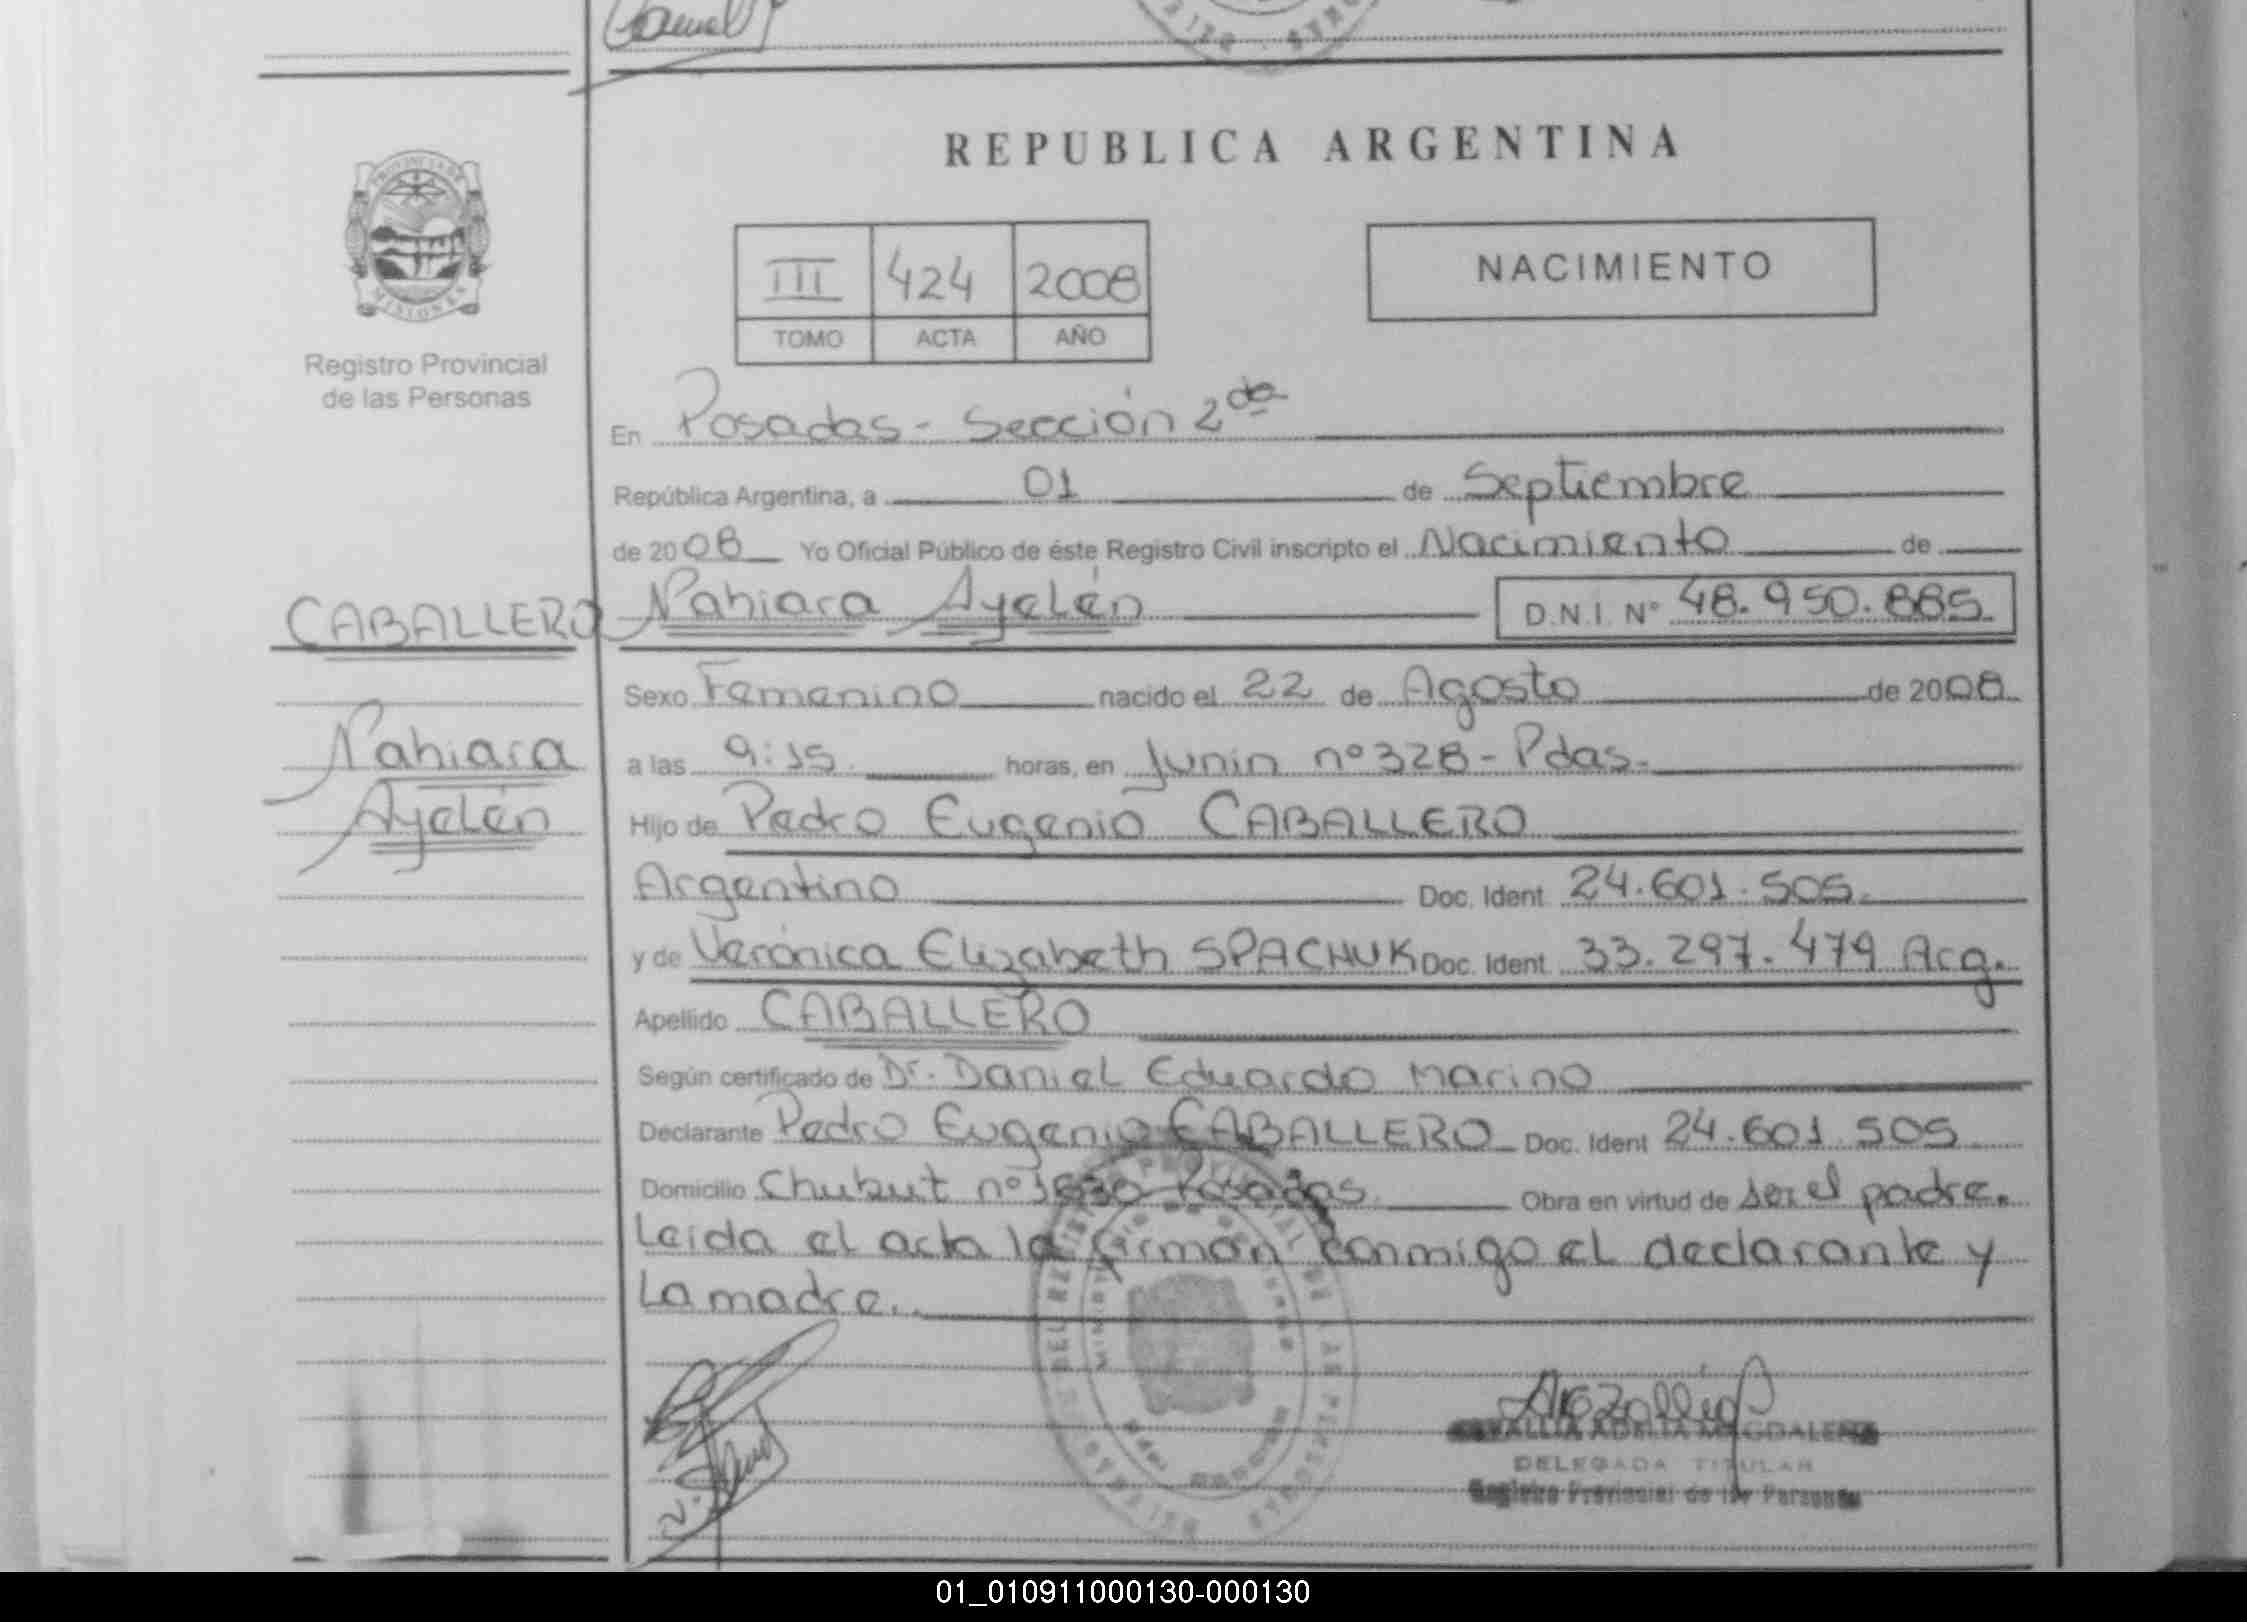 REPUBLICA ARGENTINA
PROVINCIA DE
MISIONES
Registro Provincial
de las Personas
III 424 2008
TOMO ACTA AÑO
NACIMIENTO
En Posadas - Sección 2da
República Argentina, a 01 de Septiembre
de 2008 Yo Oficial Público de éste Registro Civil inscripto el Nacimiento de
CABALLERO Nahiara Ayelén D.N.I. N° 48.950.885.
Sexo Femenino nacido el 22 de Agosto de 2008
Nahiara
Ayelén
a las 9:15 horas, en Junin nº 328 - Pdas.
Hijo de Pedro Eugenio CABALLERO
Argentino Doc. Ident 24.601.505.
y de Verónica Elizabeth SPACHUK Doc. Ident 33.297.479 Arg.
Apellido CABALLERO
Según certificado de Dr. Daniel Eduardo Marino
Declarante Pedro Eugenio CABALLERO Doc. Ident 24.601.505
Domicilio Chubut nº Posadas Obra en virtud de ser el padre.
Leida el acta la firman conmigo el declarante y
La madre.
MAGDALENA
DELEGADA TITULAR
Registro Provincial de las Personas
01_010911000130-000130